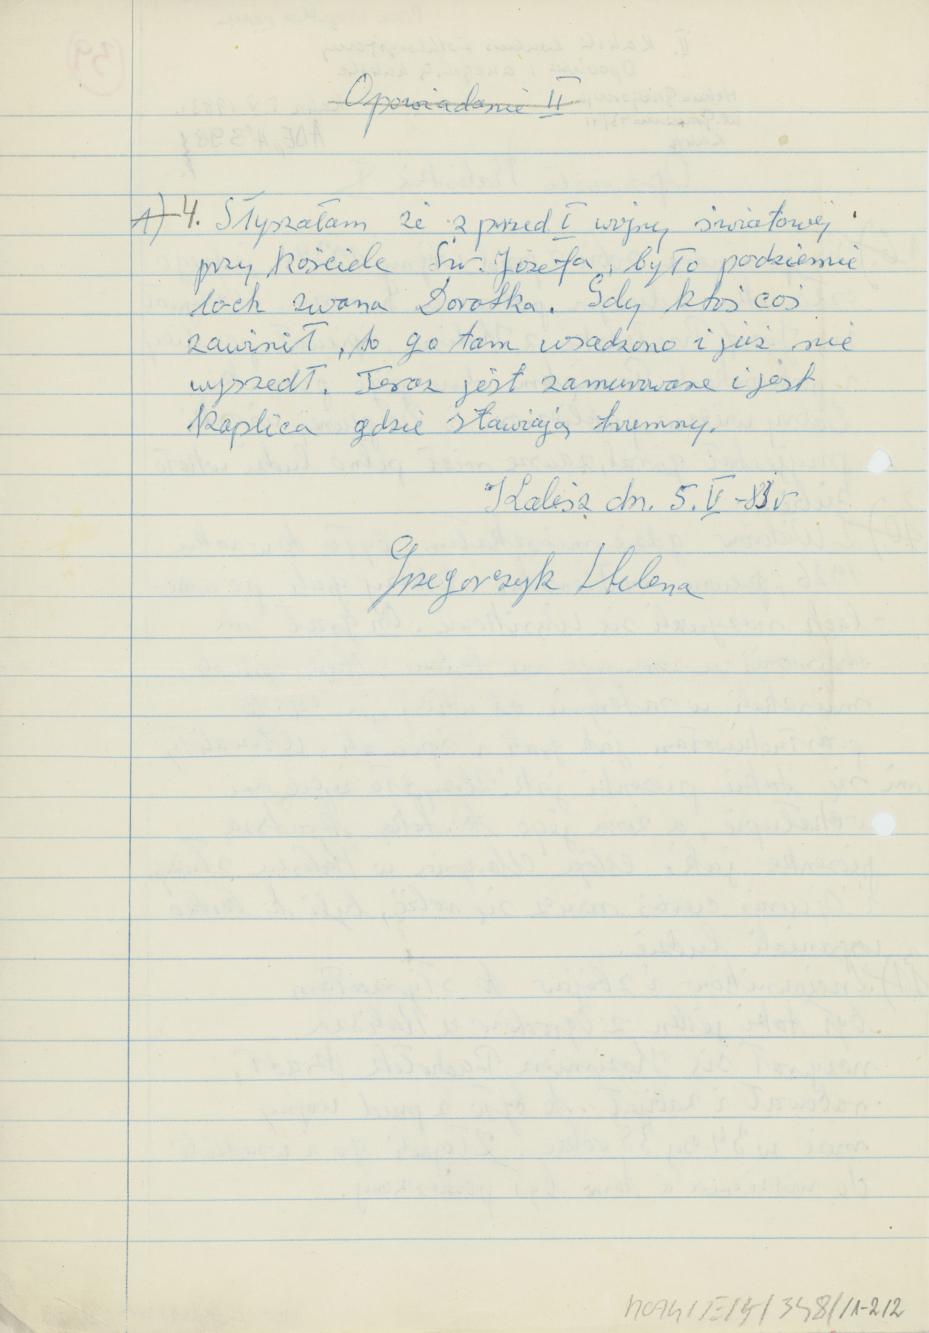 Opowiadanie II
A) 4. Słyszałam że z przed I wojny światowej
przy kościele Św. Józefa, było podziemie
loch zwana Dorotka. Gdy ktoś coś
zawinił, to go tam wsadzono i już nie
wyszedł. Teraz jest zamurowane i jest
Kaplica gdzie stawiają trumny.
Kalisz dn. 5.V-83r
Grzegorczyk Helena